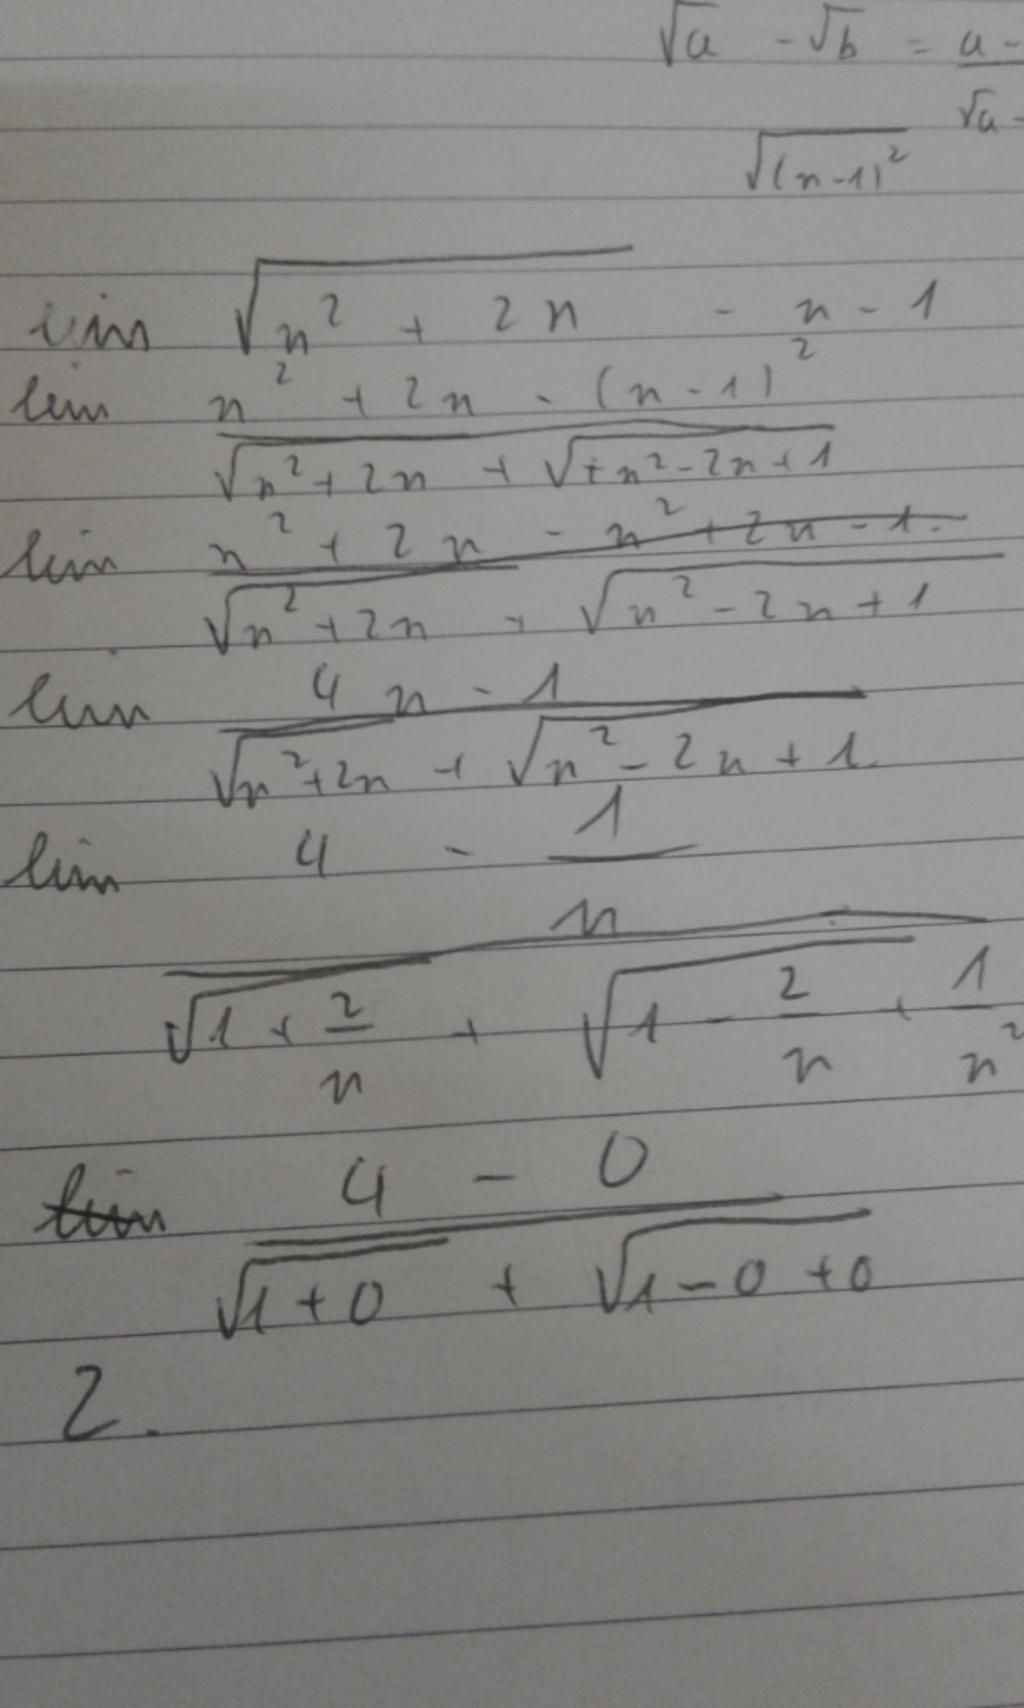 √a - √b = a -
√a -
√(n-1)²
lim √(n² + 2n) - n - 1
lim (n² + 2n - (n-1)²) / (√(n²+2n) + √(+n²-2n+1))
lim (n² + 2n - n² + 2n - 1.) / (√(n²+2n) + √(n²-2n+1))
lim (4n - 1) / (√(n²+2n) + √(n²-2n+1))
lim (4 - 1/n) / (√(1+2/n) + √(1 - 2/n + 1/n²))
lim (4 - 0) / (√(1+0) + √(1-0+0))
2.